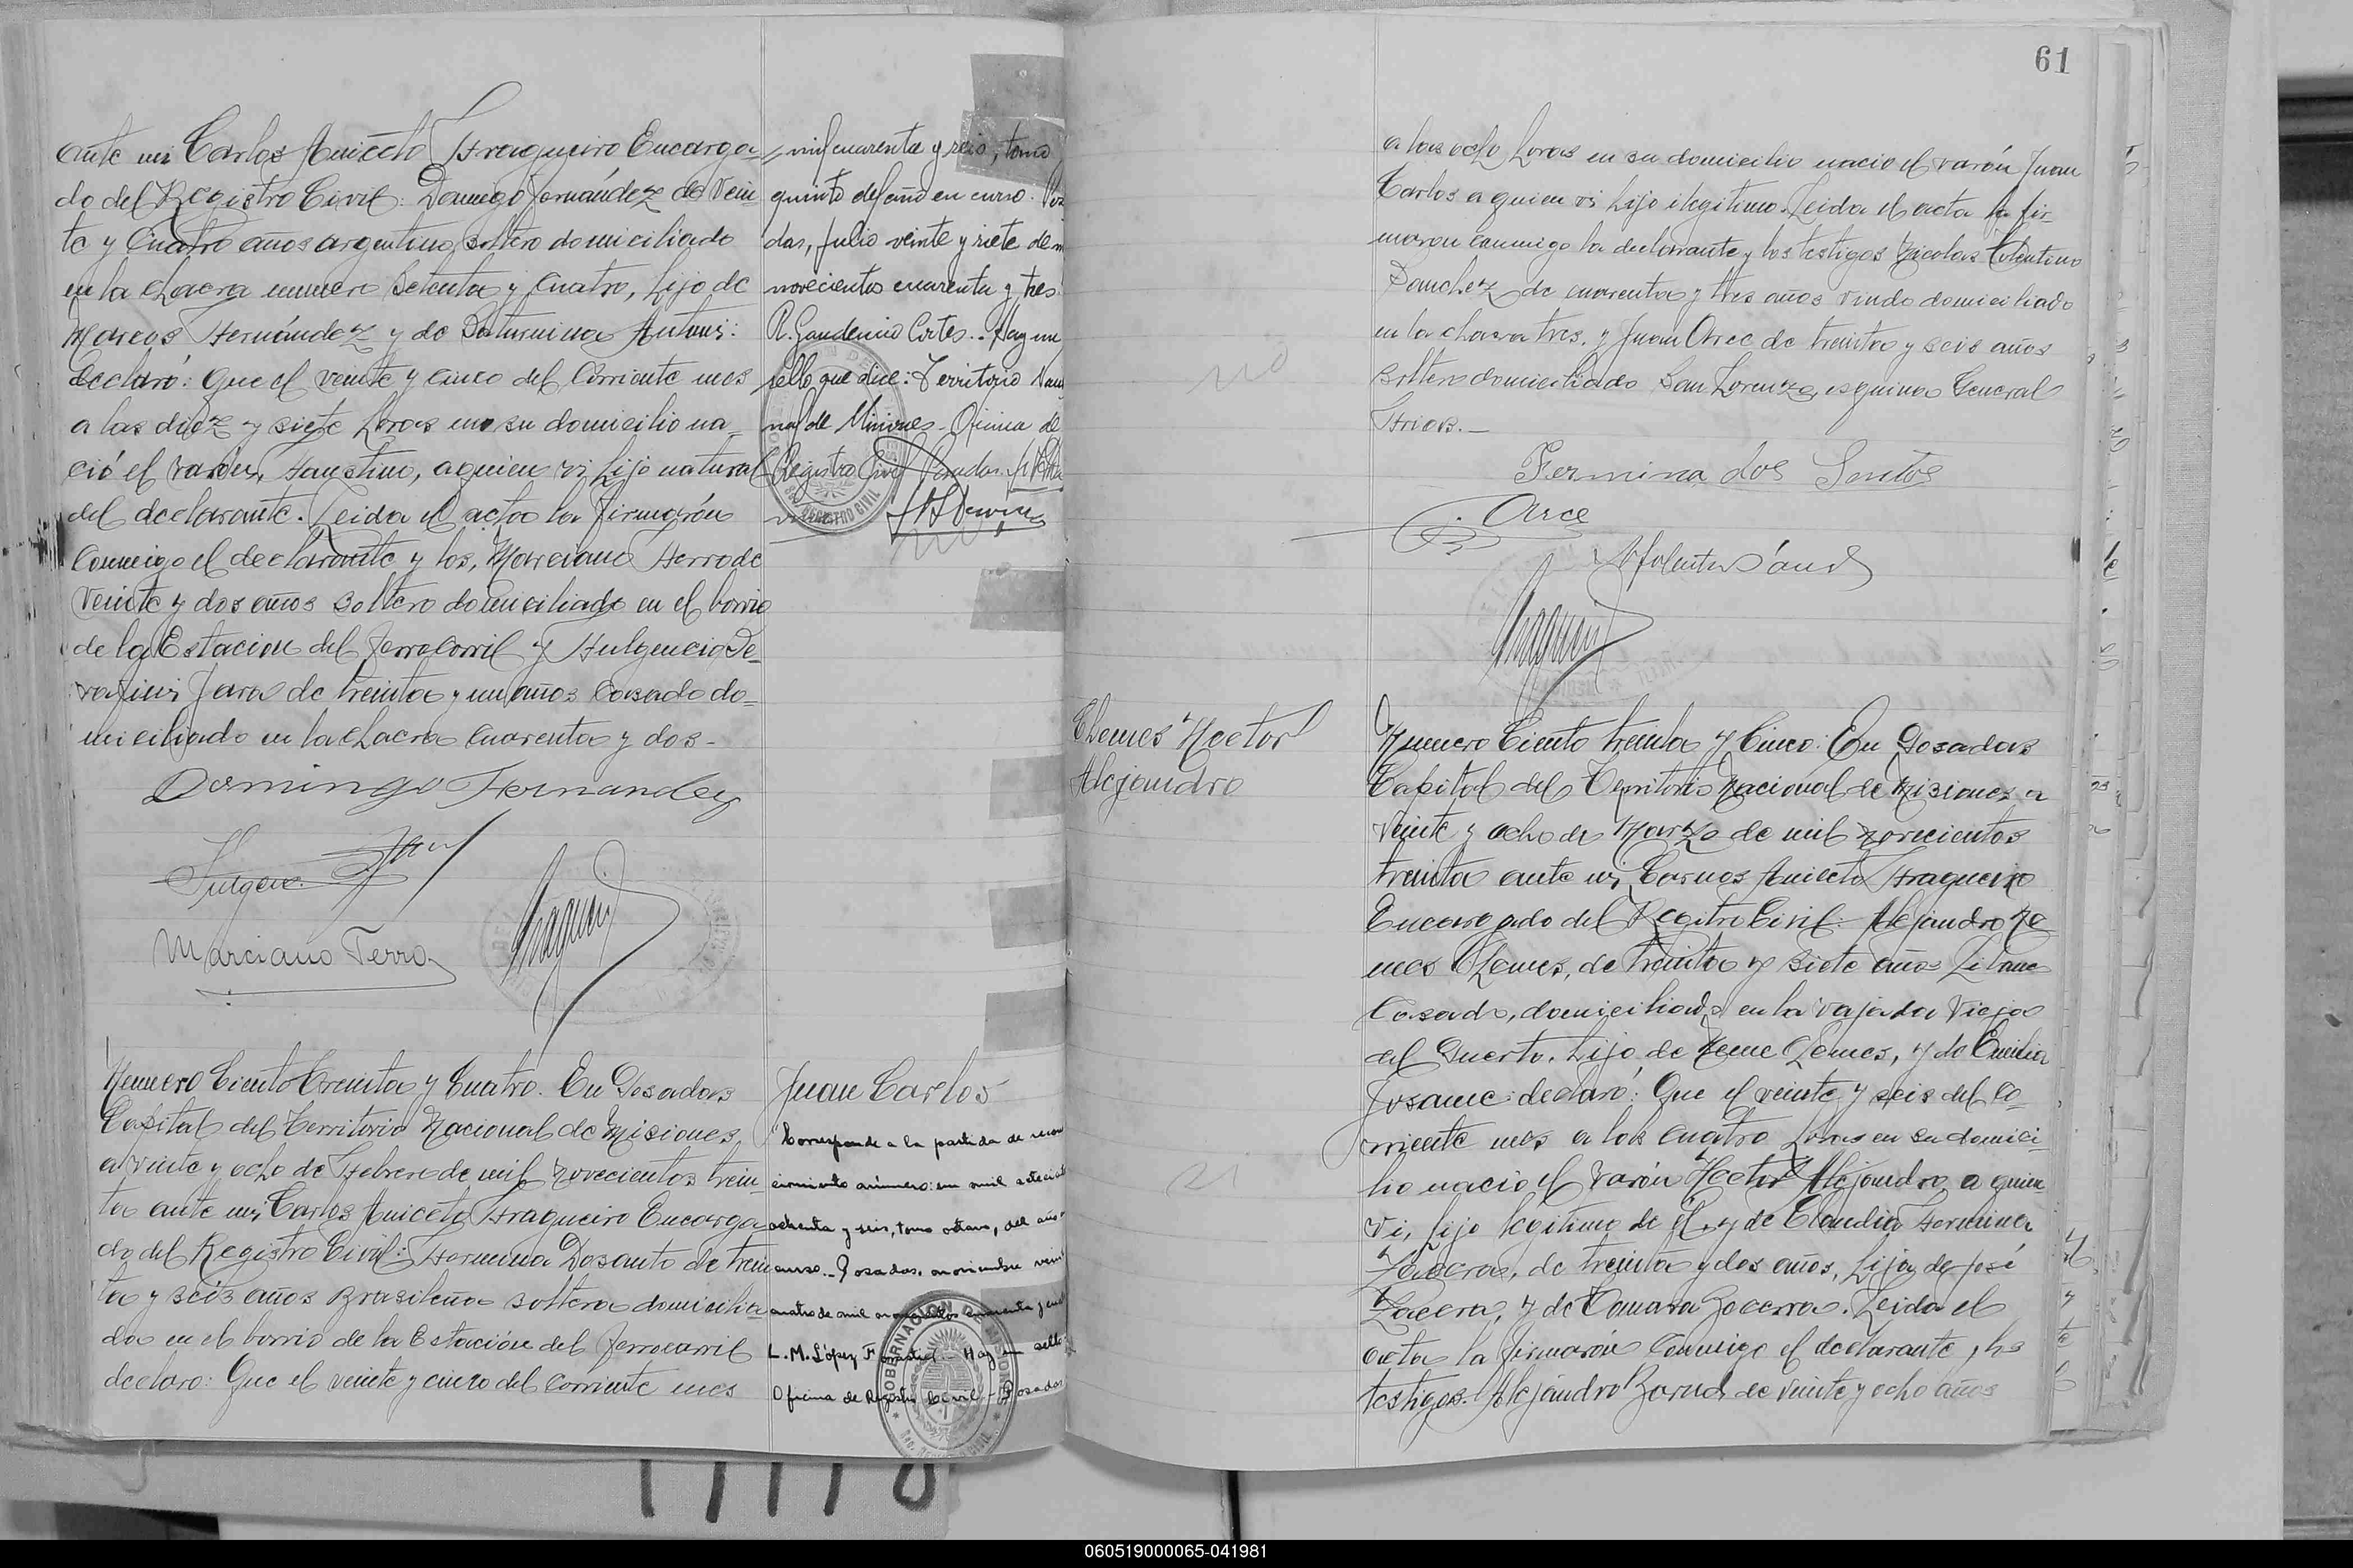 ante mi Carlos Aniceto Fragueiro Encarga-
do del Registro Civil: Domingo Fernández de Vein-
te y Cuatro años argentino, soltero domiciliado
en la chacra numero Setenta y Cuatro, hijo de
Marcos Hernández y de Saturnina Antuni:
declaró: Que el veinte y cinco del Corriente mes
a las diez y siete horas en su domicilio na-
ció el varón, Faustino, a quien vi, hijo natural
del declarante. Leida el acta la firmarón
Conmigo el declarante y los, Marciano Ferro de
Veinte y dos años soltero domiciliado en el barrio
de la Estacion del ferrocarril y Fulgencio Se-
rafin Jara de treinta y un años Casado do-
miciliado en la chacra Cuarenta y dos-
Domingo Fernandez
Fulgen.
Marciano Ferro
mil cuarenta y seis, tomo
quinto del año en curso. Po
das, Julio veinte y siete de m
novecientos cuarenta y tres
R. Gaudencio Cortes.. Hay un
sello que dice: Territorio
nal de Misiones- Oficina de
Registro Civil
REGISTRO CIVIL
Numero Ciento treinta y Cuatro. En Posadas
Capital del Territorio Nacional de Misiones,
a veinte y ocho de Febrero de mil novecientos trein-
ta ante mi, Carlos Aniceto Fragueiro Encarga-
do del Registro Civil: Fermina Dosanto de trein
ta y seis años Brasileña soltera domicilia-
da en el barrio de la Estación del ferrocarril
declaro: Que el veinte y cinco del corriente mes
Juan Carlos
Corresponde a la partida de recon
cimiento número: un mil setecie
ochenta y seis, tomo octavo, del año
curso.- Posadas, noviembre vein
cuatro de mil novecientos cincuenta y
L. M. López F Hay un sello:
Oficina de Registro Civil - Posadas
GOBERNACION DE MISIONES
61
a las ocho horas en su domicilio nacio el varón Juan
Carlos a quien vi hijo ilegitimo. Leida el acta la fir-
maron conmigo la declarante y los testigos Nicolas Tolentino
Sanchez de cuarenta y tres años viudo domiciliado
en la chacra tres, y Juan Arce de treinta y seis años
soltero domiciliado San Lorenzo, esquina General
Frias.-
no
Fermina dos Santos
Arce
Chemes Hector
Alejandro
Numero Ciento treinta y Cinco: En Posadas
Capital del Territorio Nacional de Misiones a
veinte y ocho de Marzo de mil novecientos
treinta ante mi, Carlos Aniceto Fragueiro
Encargado del Registro Civil: Alejandro Ne
mes Chemes, de treinta y siete años Libane
Casado, domiciliado en la vajada Vieja
del Puerto, hijo de Neme Chemes, y de Emilia
declaró: Que el veinte y seis del Co-
rriente mes a las cuatro horas en su domici-
lio nacio el varón Hector Alejandro a quien
vi, hijo legitimo de el, y de Claudia Fermina
de treinta y dos años, hija de José
y de Leida el
acta la firmarón Conmigo el declarante, los
testigos. Alejandro de veinte y ocho años
060519000065-041981